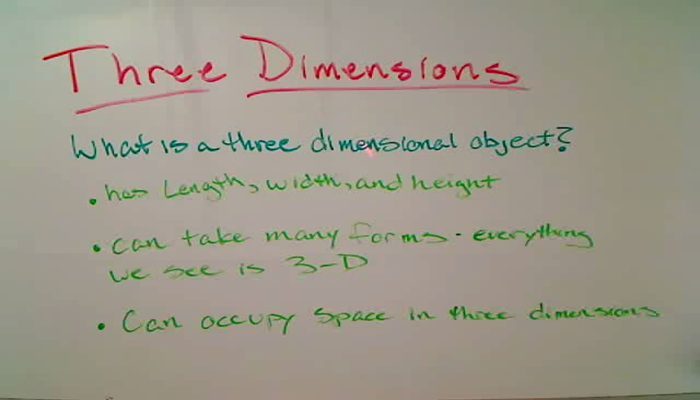 Three Dimensions
What is a three dimensional object?
• has Length, width, and height
• can take many forms - everything
we see is 3-D
• Can occupy space in three dimensions